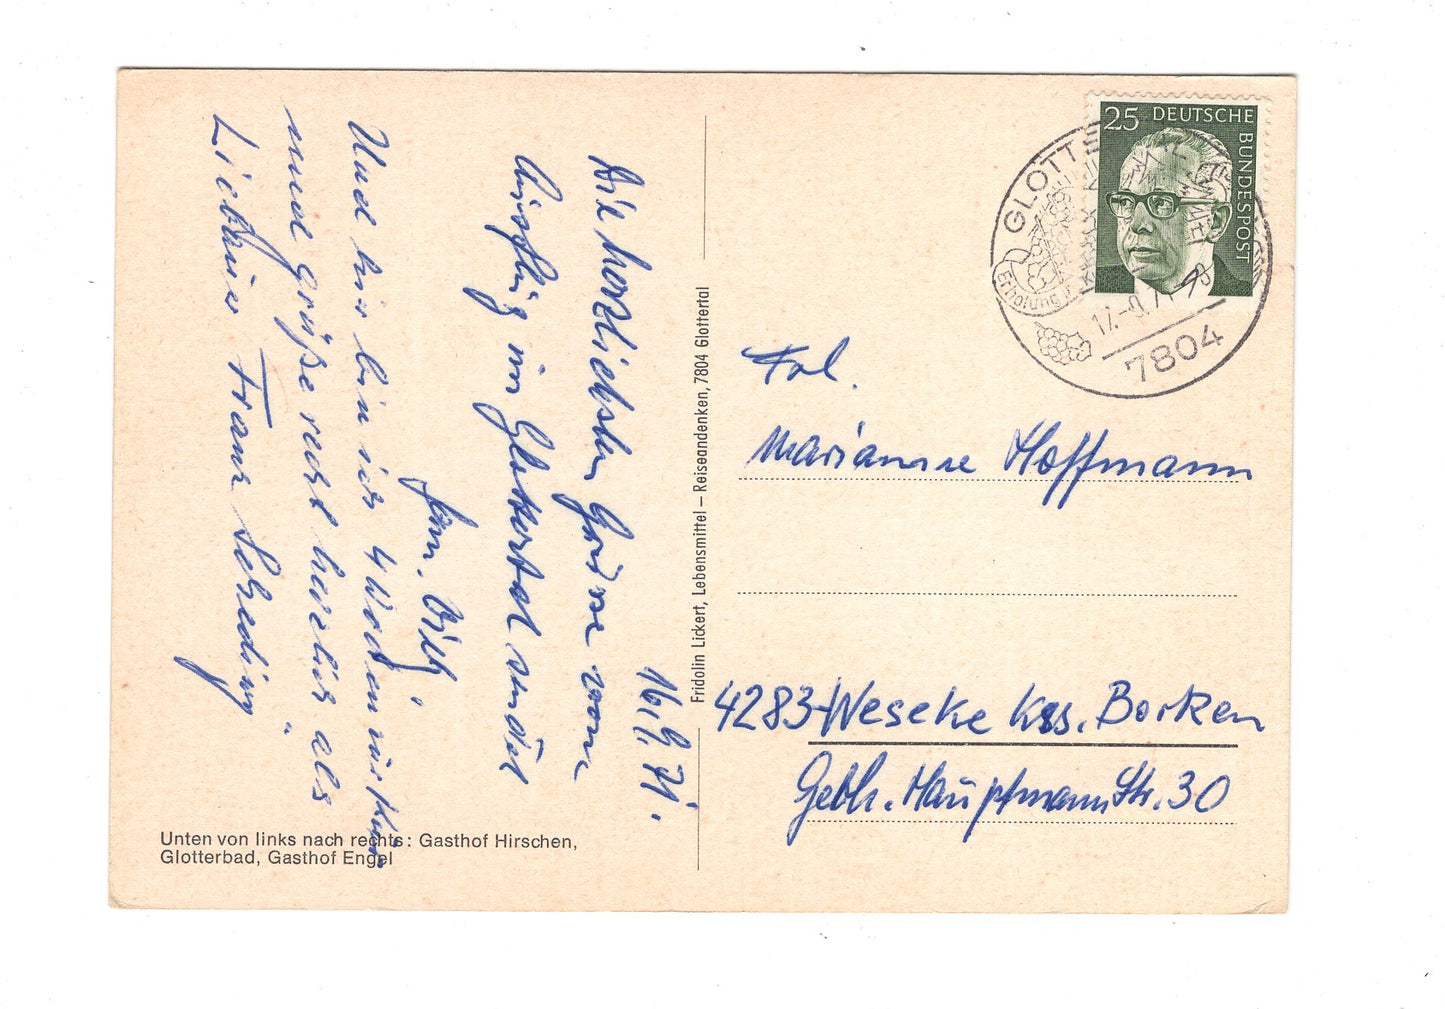 16.9.71.
Die herzlichsten Grüsse vom
Ausflug im Glottertal sendet
Fam. Dieh
Und hier bin ich 4 Wochen zur Kur
und grüße recht herzlich als
Franz Scheding
Unten von links nach rechts: Gasthof Hirschen,
Glotterbad, Gasthof Engel
Fridolin Lickert, Lebensmittel – Reiseandenken, 7804 Glottertal
25 DEUTSCHE BUNDESPOST
GLOTTE
Erholung
17.-9.71
7804
Frl.
Marianne Hoffmann
4283-Weseke Krs. Borken
Gebh. Hauptmann Str. 30